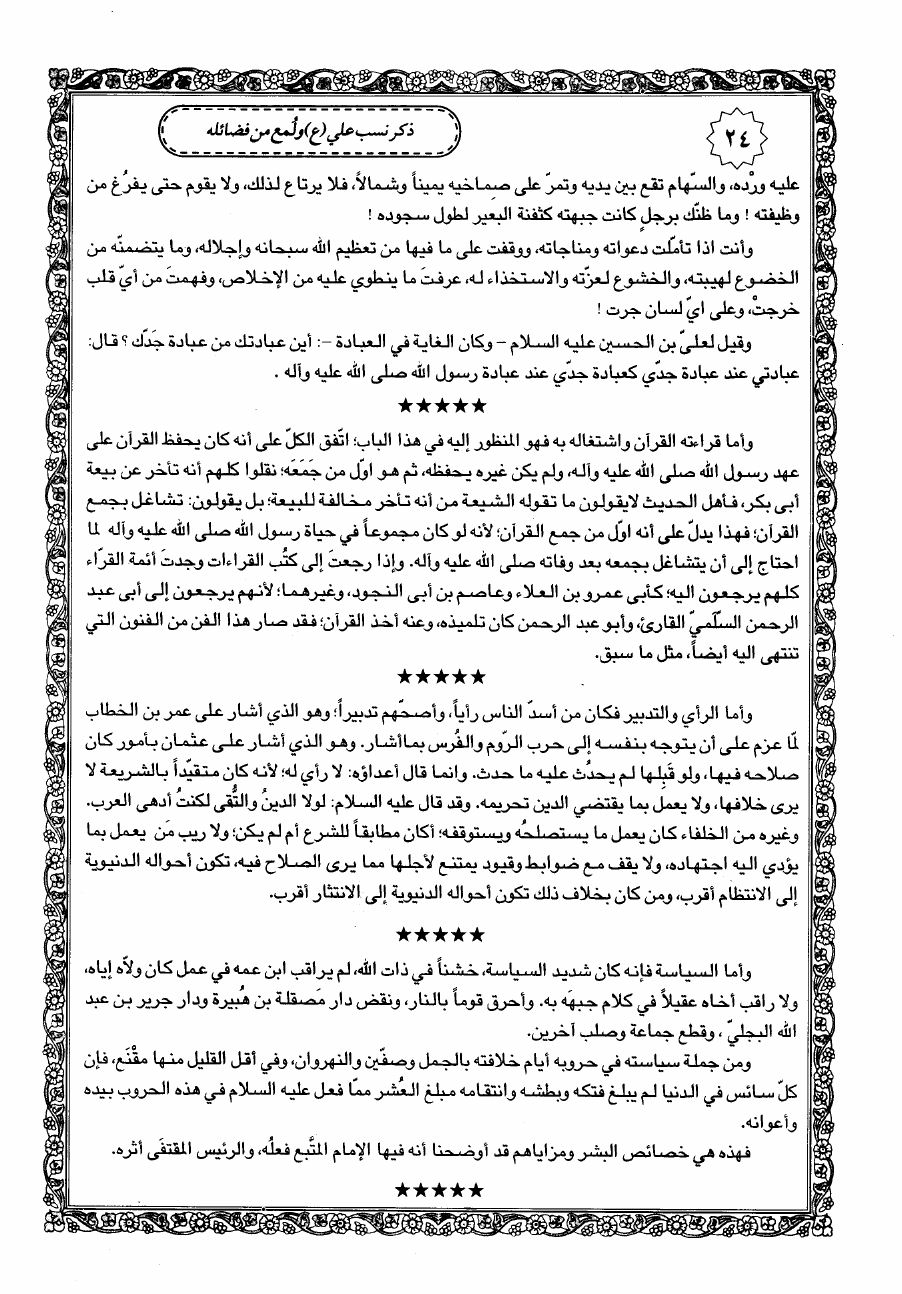 ٢٤
ذكر نسب علي (ع) ولُمع من فضائله
عليه ورْده، والسّهام تقع بين يديه وتمرّ على صِماخيه يميناً وشمالاً، فلا يرتاع لذلك، ولا يقوم حتى يفرُغ من
وظيفته ! وما ظنّك برجلٍ كانت جبهته كثفنة البعير لطول سجوده !
وأنت اذا تأمّلت دعواته ومناجاته، ووقفت على ما فيها من تعظيم الله سبحانه وإجلاله، وما يتضمنّه من
الخضوع لهيبته، والخشوع لعزّته والاستخذاء له، عرفتَ ما ينطوي عليه من الإخلاص، وفهمتَ من أيّ قلب
خرجتْ، وعلى ايّ لسان جرت !
وقيل لعليّ بن الحسين عليه السلام – وكان الغاية في العبادة –: أين عبادتك من عبادة جَدّك ؟ قال:
عبادتي عند عبادة جدّي كعبادة جدّي عند عبادة رسول الله صلى الله عليه وآله .
★★★★★
وأما قراءته القرآن واشتغاله به فهو المنظور إليه في هذا الباب؛ اتّفق الكلّ على أنه كان يحفظ القرآن على
عهد رسول الله صلى الله عليه وآله، ولم يكن غيره يحفظه، ثم هو اولّ من جَمَعَه؛ نقلوا كلهم أنه تأخر عن بيعة
أبي بكر، فأهل الحديث لايقولون ما تقوله الشيعة من أنه تأخر مخالفة للبيعة؛ بل يقولون: تشاغل بجمع
القرآن؛ فهذا يدلّ على أنه اولّ من جمع القرآن؛ لأنه لو كان مجموعاً في حياة رسول الله صلى الله عليه وآله لما
احتاج إلى أن يتشاغل بجمعه بعد وفاته صلى الله عليه وآله. وإذا رجعتَ إلى كتُب القراءات وجدتَ أئمة القرّاء
كلهم يرجعون اليه؛ كأبي عمرو بن العلاء وعاصم بن أبي النجود، وغيرهما؛ لأنهم يرجعون إلى أبي عبد
الرحمن السلّميّ القارئ، وأبو عبد الرحمن كان تلميذه، وعنه أخذ القرآن؛ فقد صار هذا الفن من الفنون التي
تنتهى اليه أيضاً، مثل ما سبق.
★★★★★
وأما الرأي والتدبير فكان من أسدّ الناس رأياً، وأصحّهم تدبيراً؛ وهو الذي أشار على عمر بن الخطاب
لمّا عزم على أن يتوجه بنفسه إلى حرب الرّوم والفُرس بماأشار. وهو الذي أشار على عثمان بأمور كان
صلاحه فيها، ولو قَبِلها لم يحدُث عليه ما حدث. وانما قال أعداؤه: لا رأي له؛ لأنه كان متقيّداً بالشريعة لا
يرى خلافها، ولا يعمل بما يقتضي الدين تحريمه. وقد قال عليه السلام: لولا الدينُ والتُّقى لكنتُ أدهى العرب.
وغيره من الخلفاء كان يعمل ما يستصلحُه ويستوقفه؛ أكان مطابقاً للشرع أم لم يكن؛ ولا ريب مَن يعمل بما
يؤدي اليه اجتهاده، ولا يقف مع ضوابط وقيود يمتنع لأجلها مما يرى الصلاح فيه، تكون أحواله الدنيوية
إلى الانتظام أقرب، ومن كان بخلاف ذلك تكون أحواله الدنيوية إلى الانتثار أقرب.
★★★★★
وأما السياسة فإنه كان شديد السياسة، خشناً في ذات الله، لم يراقب ابن عمه في عمل كان ولاّه إياه،
ولا راقب أخاه عقيلاً في كلام جبهَه به. وأحرق قوماً بالنار، ونقض دار مَصقلة بن هُبيرة ودار جرير بن عبد
الله البجليّ ، وقطع جماعة وصلب آخرين.
ومن جملة سياسته في حروبه أيام خلافته بالجمل وصفّين والنهروان، وفي أقل القليل منها مقْنَع، فإن
كلّ سائس في الدنيا لم يبلغ فتكه وبطشه وانتقامه مبلغ العُشر ممّا فعل عليه السلام في هذه الحروب بيده
وأعوانه.
فهذه هي خصائص البشر ومزاياهم قد أوضحنا أنه فيها الإمام المتَّبع فعلُه، والرئيس المقتفَى أثره.
★★★★★